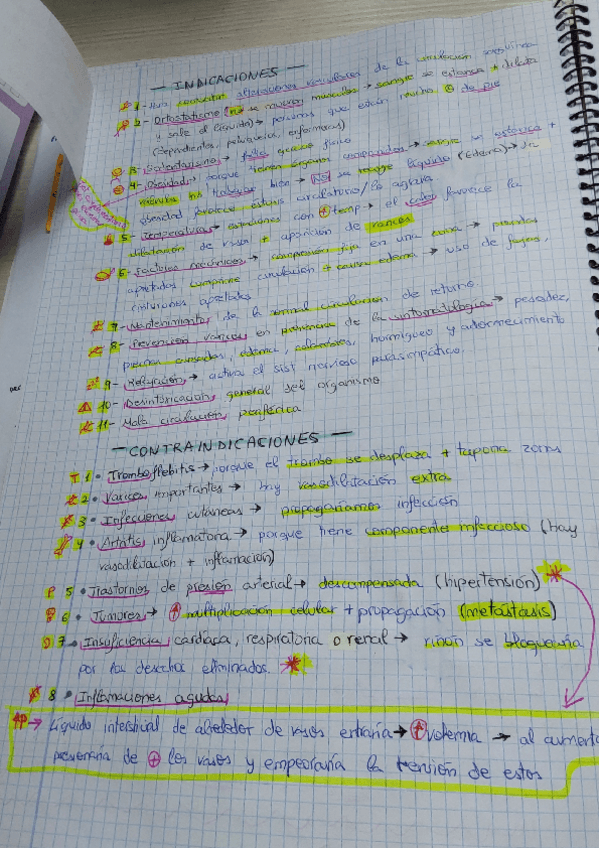 — INDICACIONES —
1- alteraciones vasculares de la circulación sanguínea
2- Ortostatismo (no se mueven músculos → sangre se estanca + dilata
y sale el líquido) → personas que están mucho de pie
(dependientes, peluqueros, enfermeras)
3- Sedentarismo → falta ejercicio físico
4- Obesidad → porque tienen órganos comprimidos → sangre se estanca +
no trabajan bien → NO se recoge líquido (Edema) →
obesidad favorece éstasis circulatorio/la agrava
5- Temperatura → estaciones con + temp → el calor favorece la
dilatación de vasos + aparición de varices
6- Factores mecánicos → compresión fija en una zona → prendas
apretadas comprime circulación + causa edema → uso de fajas,
cinturones apretados
7- Mantenimiento de la normal circulación de retorno
8- Prevención varices en presencia de la sintomatología → pesadez,
piernas cansadas, edema, calambres, hormigueo y adormecimiento
9- Relajación → activa el sist nervioso parasimpático.
10- Desintoxicación general del organismo
11- Mala circulación periférica
— CONTRAINDICACIONES —
1 • Tromboflebitis → porque el trombo se desplaza + tapona zonas
2 • Varices importantes → hay vasodilatación extra
3 • Infecciones cutáneas → propagaríamos infección
4 • Artritis inflamatoria → porque tiene componente infeccioso (hay
vasodilatación + inflamación)
5 • Trastornos de presión arterial → descompensada (hipertensión) *
6 • Tumores → ↑ multiplicación celular + propagación (metástasis)
7 • Insuficiencia cardiaca, respiratoria o renal → riñón se bloquearía
por los desechos eliminados. *
8 • Inflamaciones agudas
AP → Líquido intersticial de alrededor de vasos entraría → ↑ volemia → al aumentar
presionaría de + los vasos y empeoraría la tensión de estos